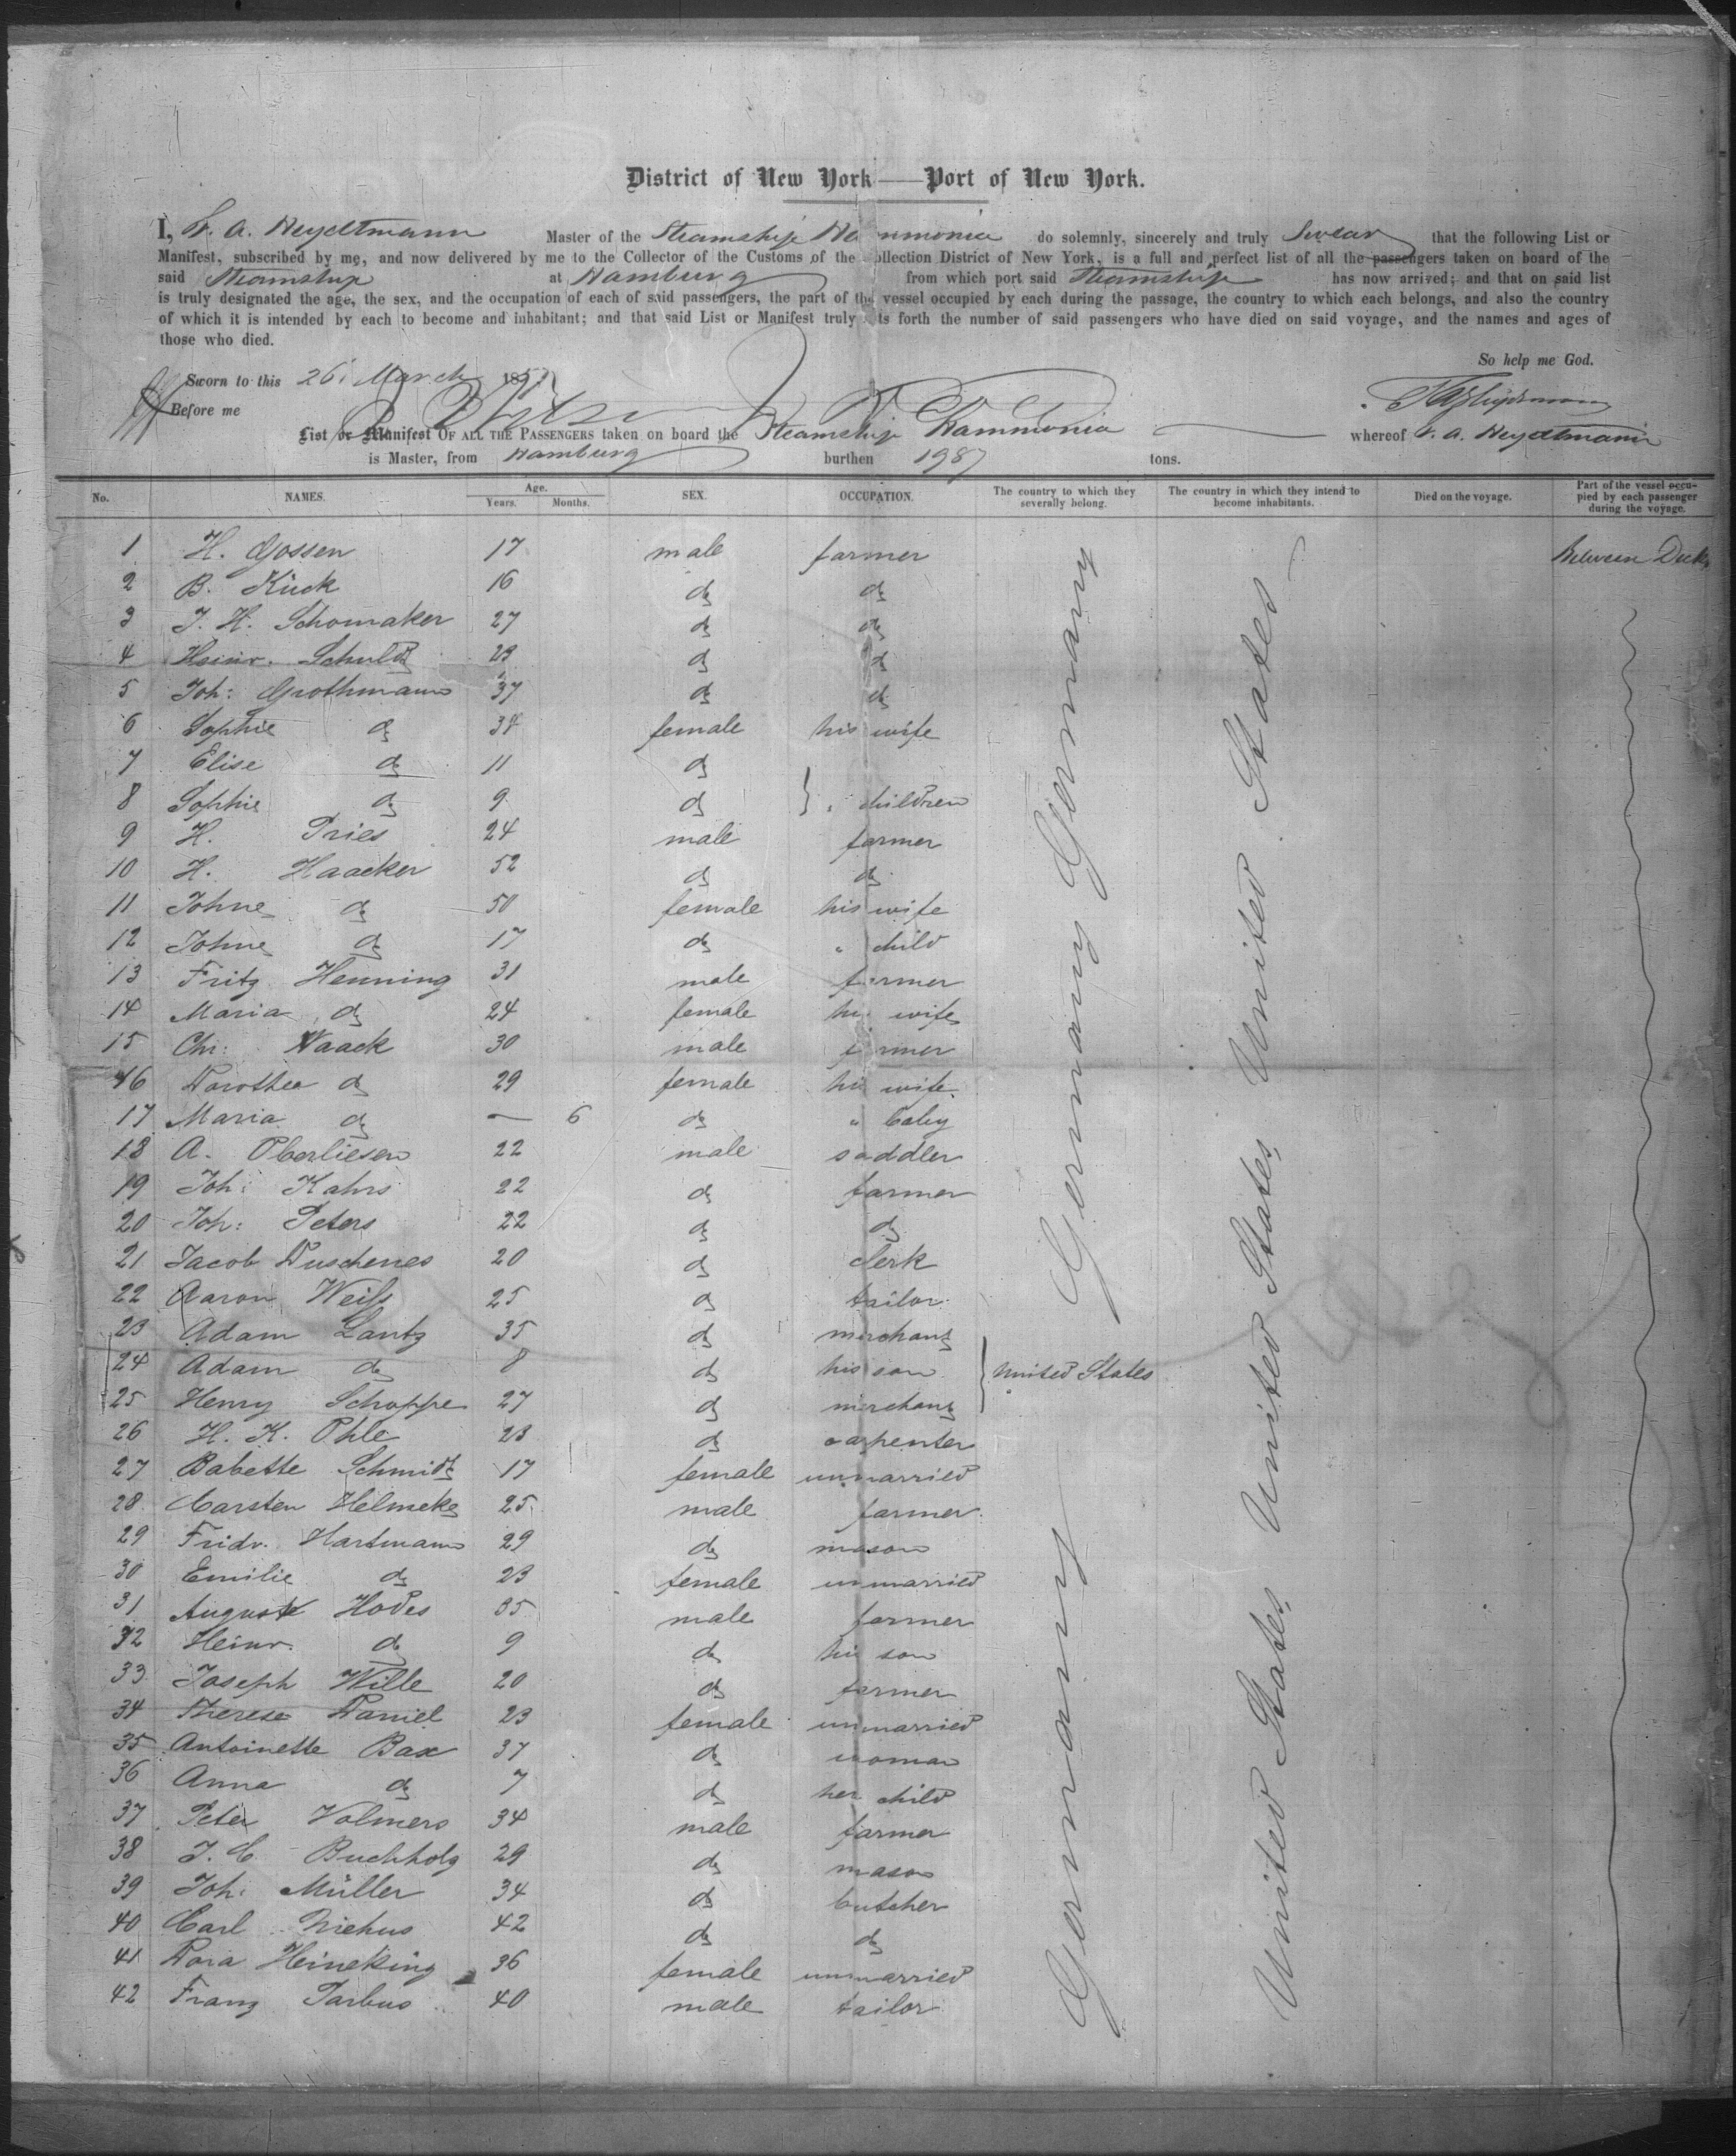 District of New York——Port of New York.
I, F. A. Heydtmann Master of the Steamship Hammonia do solemnly, sincerely and truly Swear that the following List or
Manifest, subscribed by me, and now delivered by me to the Collector of the Customs of the ollection District of New York, is a full and perfect list of all the passengers taken on board of the
said Steamship at Hamburg from which port said Steamship has now arrived; and that on said list
is truly designated the age, the sex, and the occupation of each of said passengers, the part of the vessel occupied by each during the passage, the country to which each belongs, and also the country
of which it is intended by each to become and inhabitant; and that said List or Manifest truly ts forth the number of said passengers who have died on said voyage, and the names and ages of
those who died.
So help me God.
Sworn to this 26 March
Before me
List or Manifest OF ALL THE PASSENGERS taken on board the Steamship Hammonia whereof F. A. Heydtmann
is Master, from Hamburg burthen 1987 tons.
No. NAMES. Age. Years. Months. SEX. OCCUPATION. The country to which they severally belong. The country in which they intend to become inhabitants. Died on the voyage. Part of the vessel occupied by each passenger during the voyage.
1 H. Gossen 17 male farmer Germany United States Between Decks
2 B. Kück 16 do do
3 J. H. Schomaker 27 do do
4 Heinr. Schuldt 23 do do
5 Joh: Grothmann 37 do do
6 Sophie do 34 female his wife
7 Elise do 11 do
8 Sophie do 9 do } " children
9 H. Pries 24 male farmer
10 H. Haacker 52 do do
11 Johne do 50 female his wife
12 Johne do 17 do " child
13 Fritz Henning 31 male farmer
14 Maria do 24 female his wife
15 Chr: Waack 30 male farmer
16 Dorothea do 29 female his wife
17 Maria do — 6 do " baby
18 A. Oberliesen 22 male saddler
19 Joh: Kahrs 22 do farmer
20 Joh: Peters 22 do do
21 Jacob Duschenes 20 do clerk
22 Aaron Weiss 25 do tailor
23 Adam Lantz 35 do merchant
24 Adam do 8 do his son } United States
25 Henry Schoppe 27 do merchant
26 H. K. Ohle 23 do carpenter
27 Babette Schmidt 17 female unmarried
28 Carsten Helmeke 25 male farmer
29 Fridr. Hartmann 29 do mason
30 Emilie do 23 female unmarried
31 August Hodes 35 male farmer
32 Heinr. do 9 do his son
33 Joseph Wille 20 do farmer
34 Therese Daniel 23 female unmarried
35 Antoinette Bax 37 do woman
36 Anna do 7 do her child
37 Peter Volmers 34 male farmer
38 J. C. Buchholz 29 do mason
39 Joh: Müller 34 do butcher
40 Carl Niehus 42 do do
41 Dora Heineking 36 female unmarried
42 Franz Parbus 40 male tailor
Germany Germany
Germany
United States
United States
United States